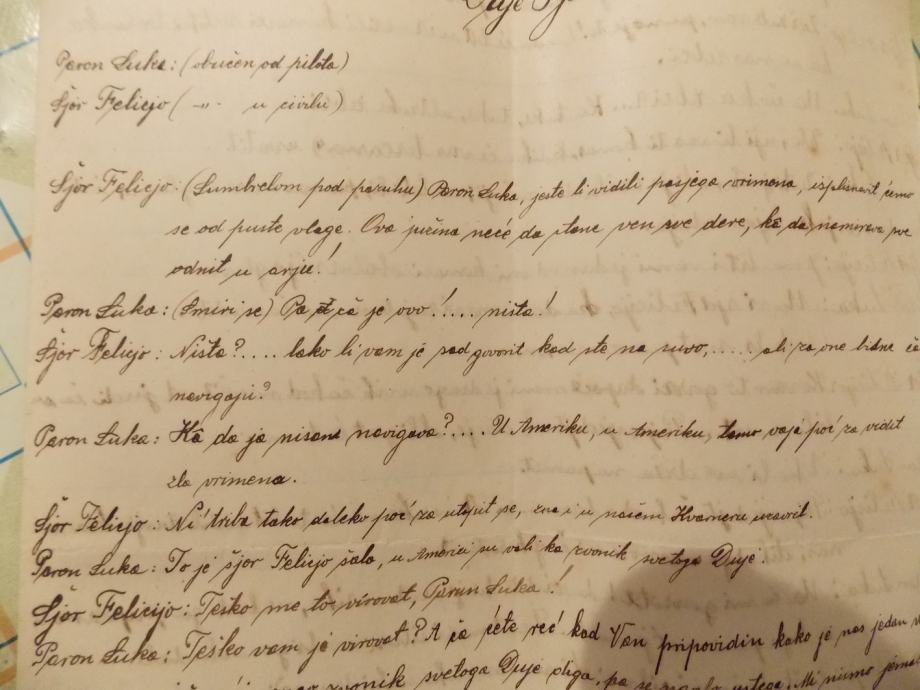 Duje
Paron Luka: (obučen od pilota)
Šjor Felicjo ( -"- u civilu)
Šjor Felicjo: (Lumbrelom pod pazuhu) Paron Luka, jeste li vidili pasjega vrimena, isplisnavit ćemo
se od puste vlage. Ova južina neće da stane ven sve dere, kâ da namirava sve
odnit u arju!
Paron Luka: (Smiri se) Pa ča je ovo!..... ništa!
Šjor Felicjo: Ništa?.... lako li vam je sad govorit kad ste na suvo,..... ali za one bidne ča
navigaju?
Paron Luka: Kâ da ja nisam navigava?.... U Ameriku, u Ameriku, tamo vaja poć za vidit
zla vrimena.
Šjor Felicjo: Ni triba tako daleko poć za utopit se, zna i u našem Kvarneru uzavrit.
Paron Luka: To je šjor Felicjo šala, u Americi su vali ka zvonik svetoga Duje.
Šjor Felicijo: Teško me to vírovat, Parun Luka!
Paron Luka: Teško vam je virovat? A ča ćete reć kad Van pripovidin kako je nas jedan
zvonik svetoga Duje diga, pa se Mi nismo